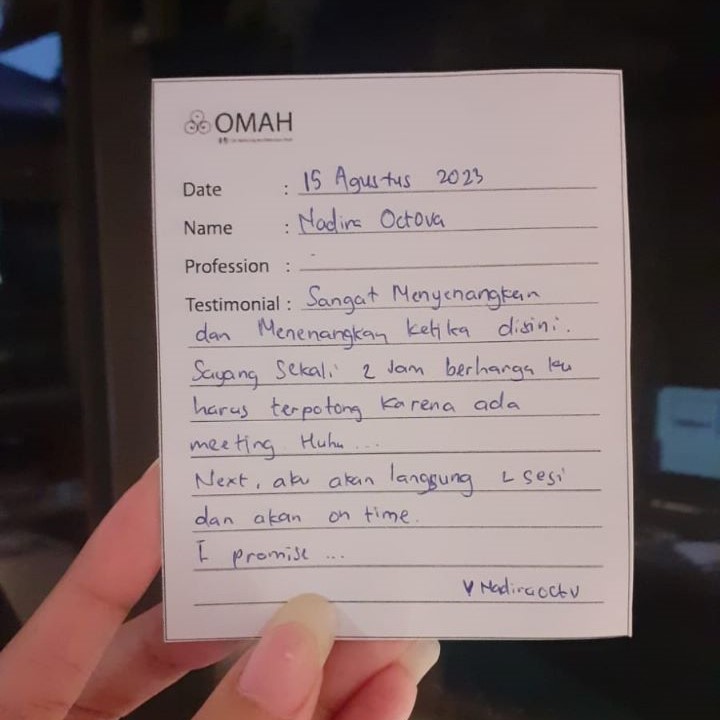 OMAH
Date : 15 Agustus 2023
Name : Nadira Octova
Profession : -
Testimonial : Sangat Menyenangkan
dan Menenangkan ketika disini.
Sayang Sekali 2 Jam berharga ku
harus terpotong karena ada
meeting Huhu ...
Next, aku akan langsung 2 sesi
dan akan on time.
I promise ...
Nadiraoctv